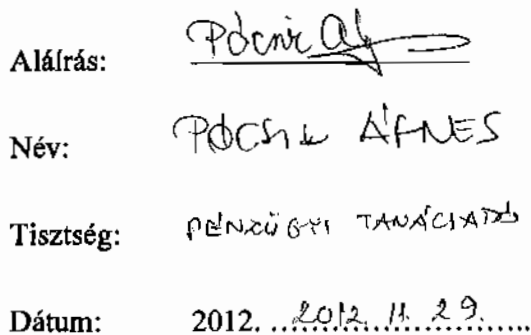 Aláírás: Pócsik Ág
Név: PÓCSIK ÁGNES
Tisztség: PÉNZÜGYI TANÁCSADÓ
Dátum: 2012. 2012. 11. 29.